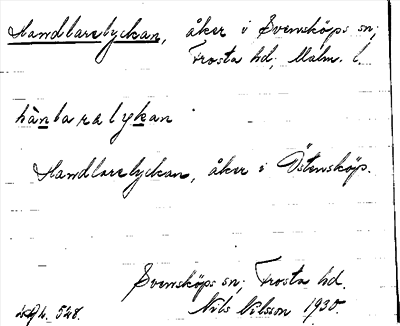 Handlarelyckan, åker i Svensköps sn;
Frosta hd; Malm. l.
hànlaralykan
Handlarelyckan, åker i Östensköp.
Svensköps sn; Frosta hd.
528. Nils Nilsson 1930.